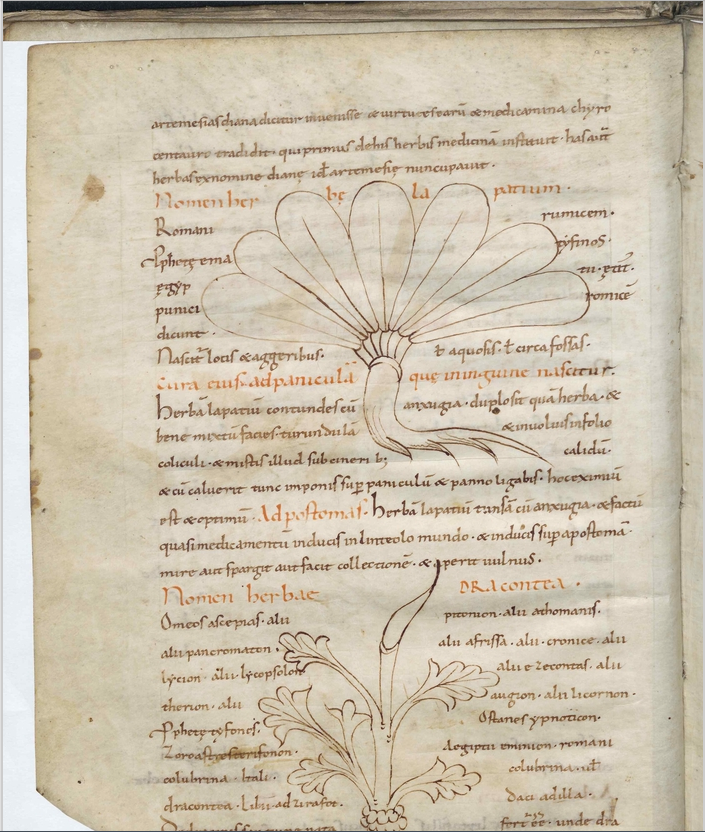 artemesias diana dicitur invenisse & virtutes earū & medicamina chyro
centauro tradidit · qui primus dehis herbis medicinā instituit · has aūt
herbas exnomine dianę id ē artemesię nuncupavit ·
Nomen her bę la patium ·
Romani rumicem ·
Pphetę ema tyfinos ·
egyp
punici romice
dicunt ·
Nascit locis & aggeribus · ł aquosis · ł circa fossas ·
Cura eius · ad paniculā quę in inguine nascitur ·
Herbā lapatiū contundes cū anxugia · duplo sit quā herba · &
bene mixtū facies · turundulā & involuis infolio
coliculi · & mistis illud sub cineri b; calidū ·
& cū caluerit tunc imponis sup paniculū & panno ligabis · hoc eximiū
est & optimū · Ad postomas · Herbā lapatiū transā cū anxugia · & factū
quasi medicamentū inducis in linteolo mundo · & inducis sup apostomā ·
mire aut spargit aut facit collectionē · & aperit vulnus ·
Nomen herbae DRacontea ·
Omeos ascepias · alii pitonion · alii athomanis ·
alii pancromaton · alii afrissa · alii · cronice · alii
lycion · alii · lycopsolon alii e recontas · alii
therion · alii augion · alii licornon ·
Pphetę tyfonos · Ostanes ypnoticon ·
Zoroastres Aegiptii eminion · romani
colubrina · Itali · colubrina · id
dracontea · Libii · ad zirafot · Daci adilla ·
unde dra